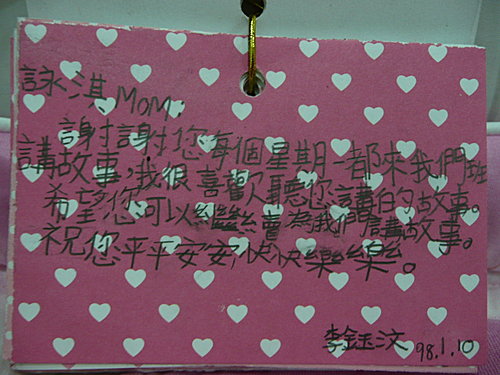 詠淇MOM:
謝謝您每個星期一都來我們班
講故事,我很喜歡聽您講的故事。
希望您可以繼續為我們講故事。
祝您平平安安,快快樂樂。
李鈺汶
98.1.10